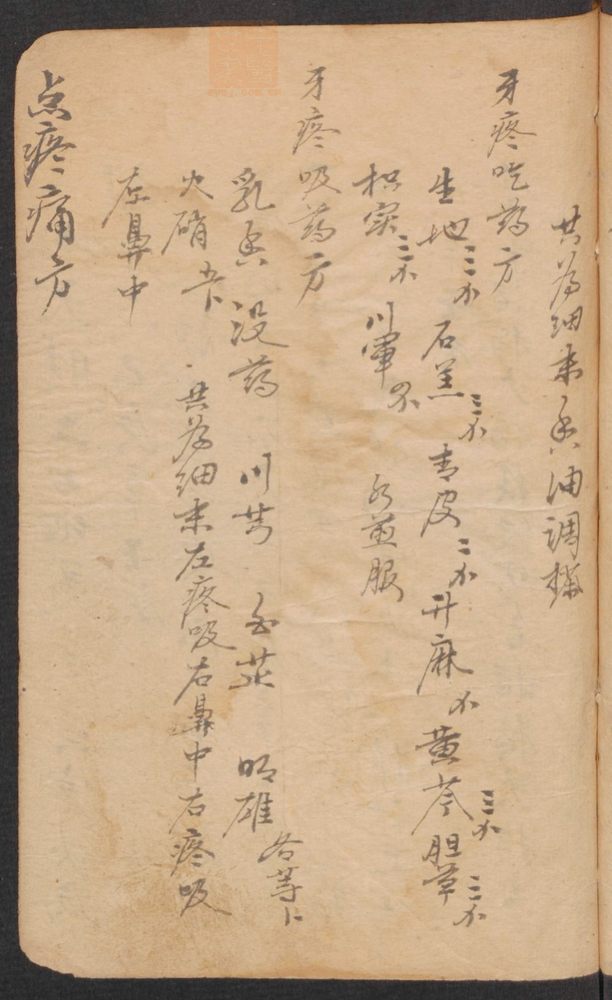 共為细末香油調搽
牙疼吃药方
生地三不 石羔三不 青皮二不 升麻不 黄芩三不 胆草三不
枳实三不 川軍不 水煎服
牙疼吸药方
乳香 没药 川芎 白芷 明雄 各等卜
火硝 共為细末左疼吸右鼻中右疼吸
左鼻中
点疼痛方